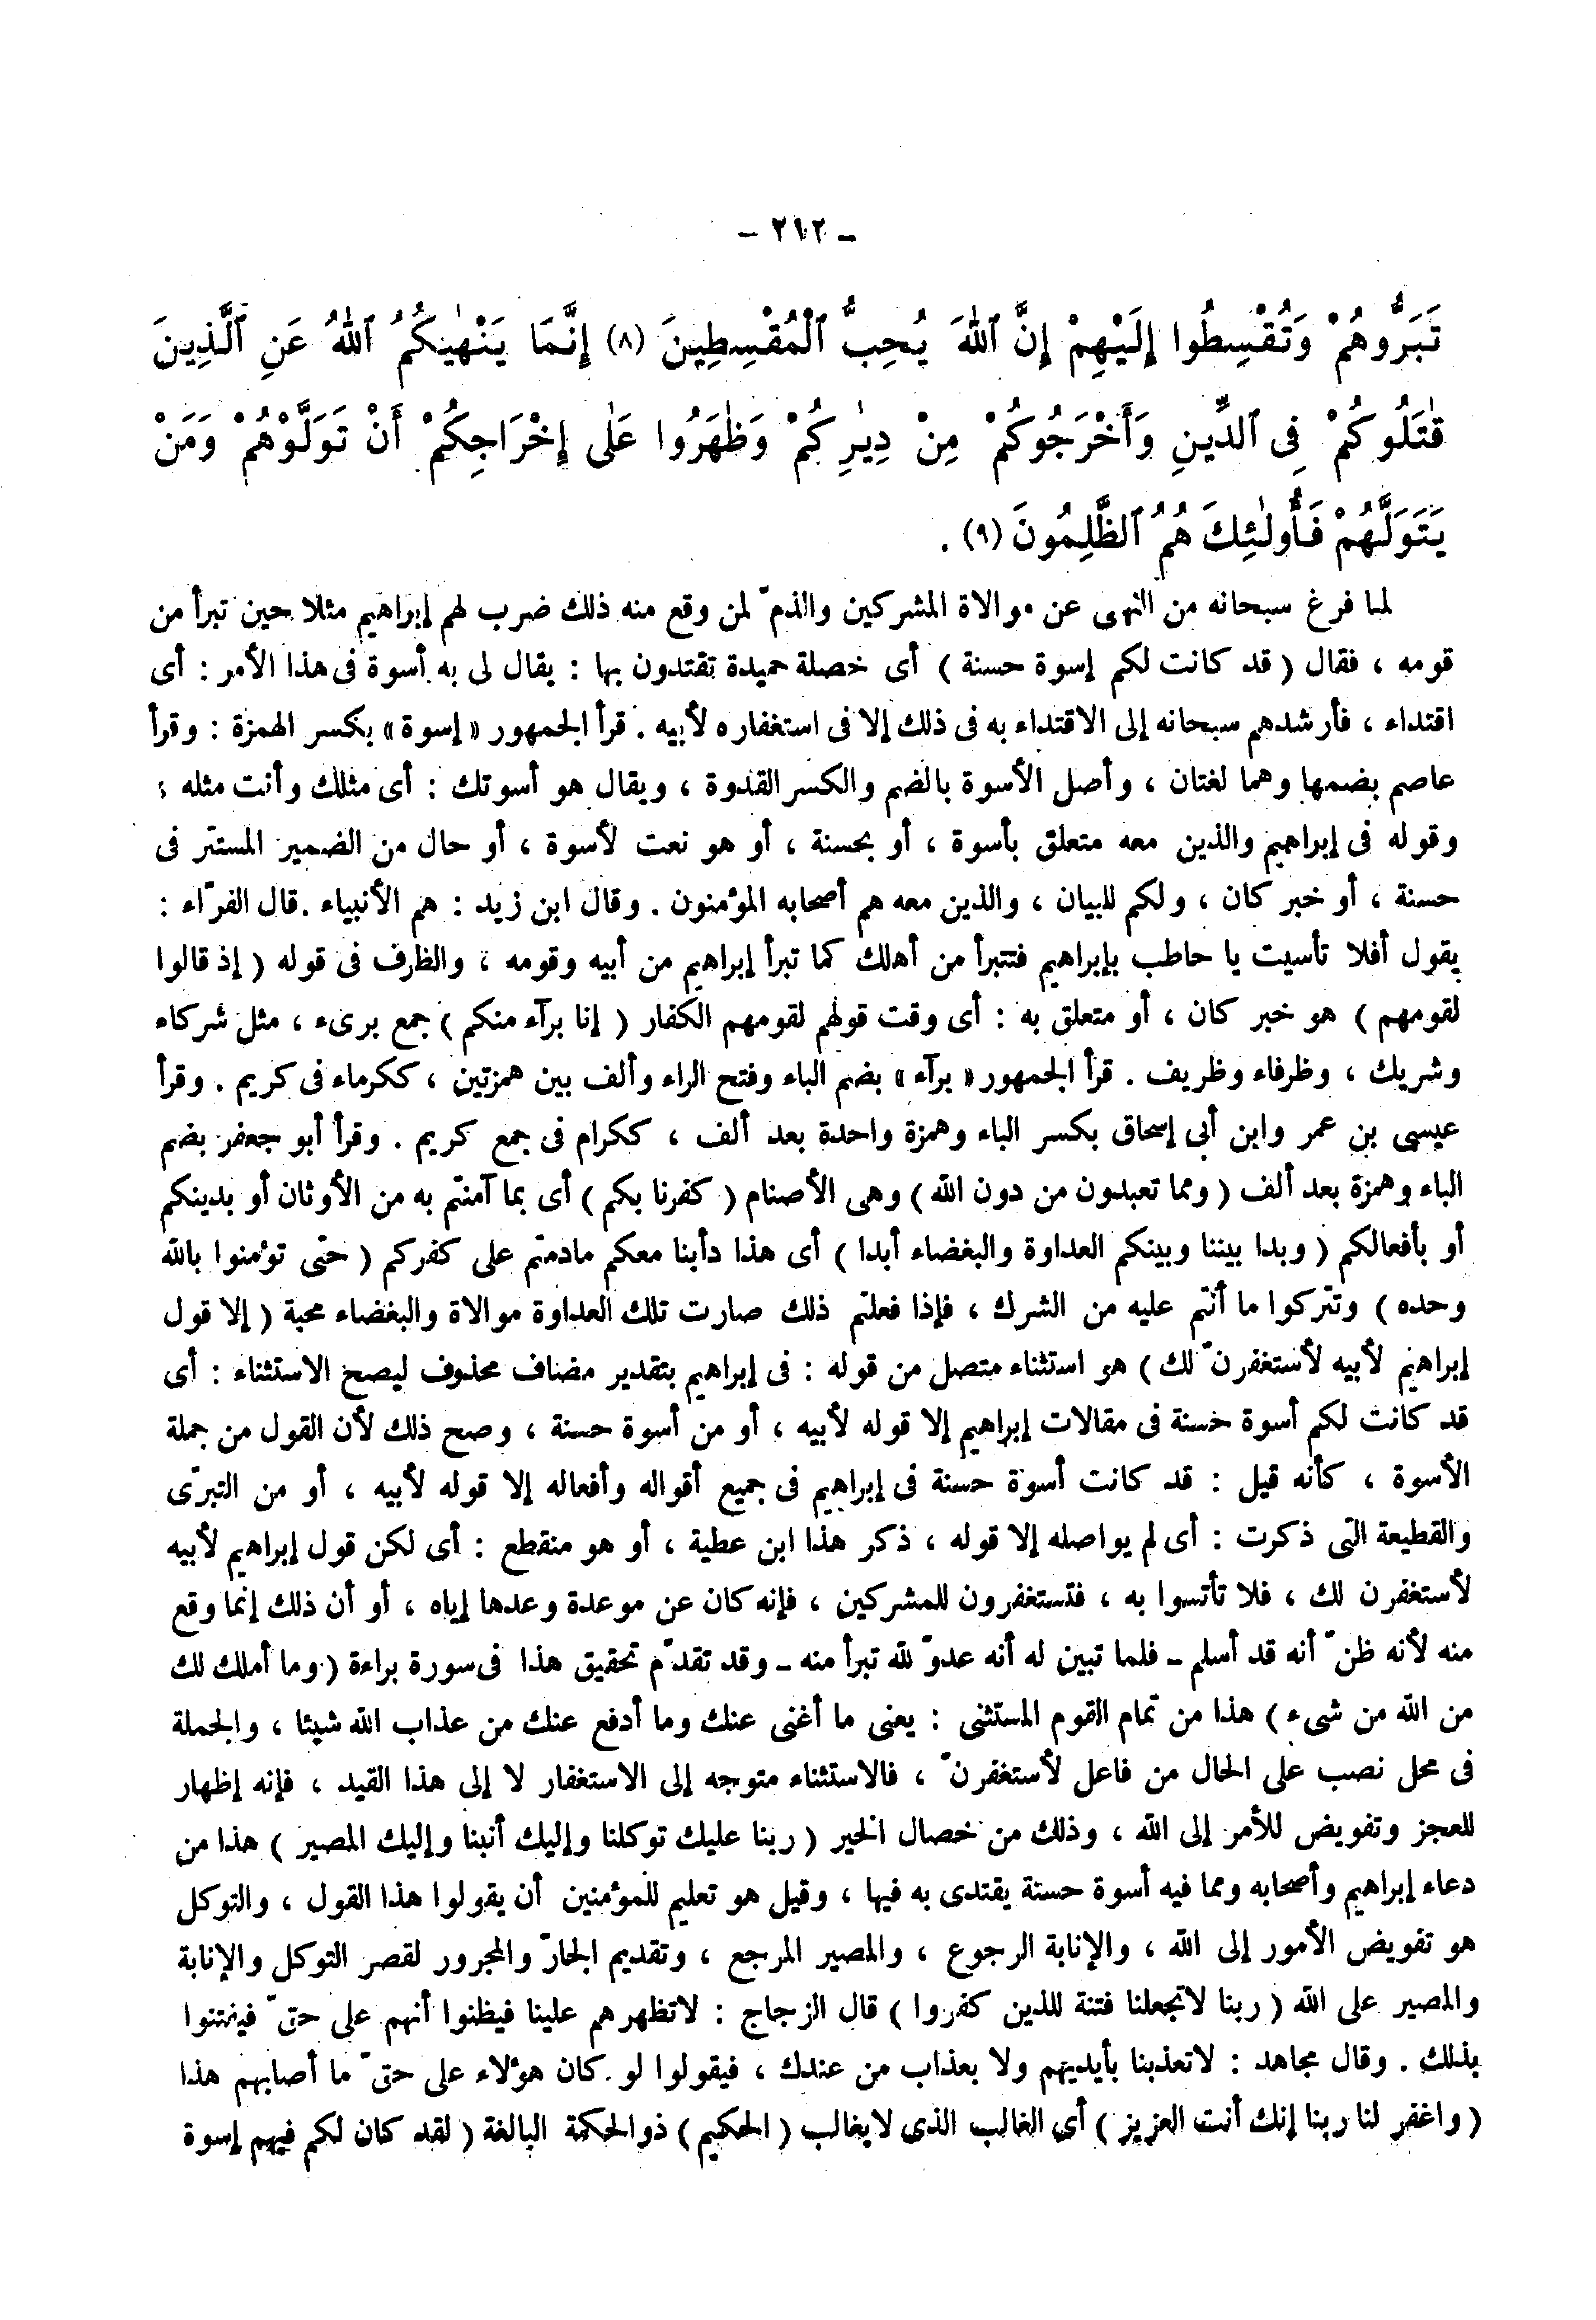 ـ ٢١٢ ـ
تَبَرُّوهُمْ وَتُقْسِطُوا إِلَيْهِمْ إِنَّ ٱللهَ يُحِبُّ ٱلْمُقْسِطِينَ (٨) إِنَّمَا يَنْهٰيكُمُ ٱللهُ عَنِ ٱلَّذِينَ
قٰتَلُوكُمْ فِى ٱلدِّينِ وَأَخْرَجُوكُمْ مِنْ دِيٰرِكُمْ وَظٰهَرُوا عَلٰى إِخْرَاجِكُمْ أَنْ تَوَلَّوْهُمْ وَمَنْ
يَتَوَلَّهُمْ فَأُولٰئِكَ هُمُ ٱلظَّٰلِمُونَ (٩) .
لما فرغ سبحانه من النهى عن موالاة المشركين والذمّ لمن وقع منه ذلك ضرب لهم إبراهيم مثلا حين تبرأ من
قومه ، فقال ( قد كانت لكم إسوة حسنة ) أى خصلة حميدة تقتدون بها : يقال لى به أسوة فى هذا الأمر : أى
اقتداء ، فأرشدهم سبحانه إلى الاقتداء به فى ذلك إلا فى استغفاره لأبيه . قرأ الجمهور « إسوة » بكسر الهمزة : وقرأ
عاصم بضمها وهما لغتان ، وأصل الأسوة بالضم والكسر القدوة ، ويقال هو أسوتك : أى مثلك وأنت مثله ؛
وقوله فى إبراهيم والذين معه متعلق بأسوة ، أو بحسنة ، أو هو نعت لأسوة ، أو حال من الضمير المستتر فى
حسنة ، أو خبر كان ، ولكم للبيان ، والذين معه هم أصحابه المؤمنون . وقال ابن زيد : هم الأنبياء . قال الفرّاء :
يقول أفلا تأسيت يا حاطب بإبراهيم فتتبرأ من أهلك كما تبرأ إبراهيم من أبيه وقومه ، والظرف فى قوله ( إذ قالوا
لقومهم ) هو خبر كان ، أو متعلق به : أى وقت قولهم لقومهم الكفار ( إنا برآء منكم ) جمع برىء ، مثل شركاء
وشريك ، وظرفاء وظريف . قرأ الجمهور « برآء » بضم الباء وفتح الراء وألف بين همزتين ، ككرماء فى كريم . وقرأ
عيسى بن عمر وابن أبى إسحاق بكسر الباء وهمزة واحدة بعد ألف ، ككرام فى جمع كريم . وقرأ أبو جعفر بضم
الباء وهمزة بعد ألف ( ومما تعبدون من دون الله ) وهى الأصنام ( كفرنا بكم ) أى بما آمنتم به من الأوثان أو بدينكم
أو بأفعالكم ( وبدا بيننا وبينكم العداوة والبغضاء أبدا ) أى هذا دأبنا معكم مادمتم على كفركم ( حتى تؤمنوا بالله
وحده ) وتتركوا ما أنتم عليه من الشرك ، فإذا فعلتم ذلك صارت تلك العداوة موالاة والبغضاء محبة ( إلا قول
إبراهيم لأبيه لأستغفرنّ لك ) هو استثناء متصل من قوله : فى إبراهيم بتقدير مضاف محذوف ليصح الاستثناء : أى
قد كانت لكم أسوة حسنة فى مقالات إبراهيم إلا قوله لأبيه ، أو من أسوة حسنة ، وصح ذلك لأن القول من جملة
الأسوة ، كأنه قيل : قد كانت أسوة حسنة فى إبراهيم فى جميع أقواله وأفعاله إلا قوله لأبيه ، أو من التبرّى
والقطيعة التى ذكرت : أى لم يواصله إلا قوله ، ذكر هذا ابن عطية ، أو هو منقطع : أى لكن قول إبراهيم لأبيه
لأستغفرن لك ، فلا تأتسوا به ، فتستغفرون للمشركين ، فإنه كان عن موعدة وعدها إياه ، أو أن ذلك إنما وقع
منه لأنه ظنّ أنه قد أسلم ـ فلما تبين له أنه عدوّ لله تبرأ منه ـ وقد تقدّم تحقيق هذا فى سورة براءة ( وما أملك لك
من الله من شىء ) هذا من تمام القوم المستثنى : يعنى ما أغنى عنك وما أدفع عنك من عذاب الله شيئا ، والجملة
فى محل نصب على الحال من فاعل لأستغفرنّ ، فالاستثناء متوجه إلى الاستغفار لا إلى هذا القيد ، فإنه إظهار
للعجز وتفويض للأمر إلى الله ، وذلك من خصال الخير ( ربنا عليك توكلنا وإليك أنبنا وإليك المصير ) هذا من
دعاء إبراهيم وأصحابه ومما فيه أسوة حسنة يقتدى به فيها ، وقيل هو تعليم للمؤمنين أن يقولوا هذا القول ، والتوكل
هو تفويض الأمور إلى الله ، والإنابة الرجوع ، والمصير المرجع ، وتقديم الجارّ والمجرور لقصر التوكل والإنابة
والمصير على الله ( ربنا لاتجعلنا فتنة للذين كفروا ) قال الزجاج : لاتظهرهم علينا فيظنوا أنهم على حقّ فيفتتنوا
بذلك . وقال مجاهد : لاتعذبنا بأيديهم ولا بعذاب من عندك ، فيقولوا لو كان هؤلاء على حقّ ما أصابهم هذا
( واغفر لنا ربنا إنك أنت العزيز ) أى الغالب الذى لايغالب ( الحكيم ) ذو الحكمة البالغة ( لقد كان لكم فيهم إسوة